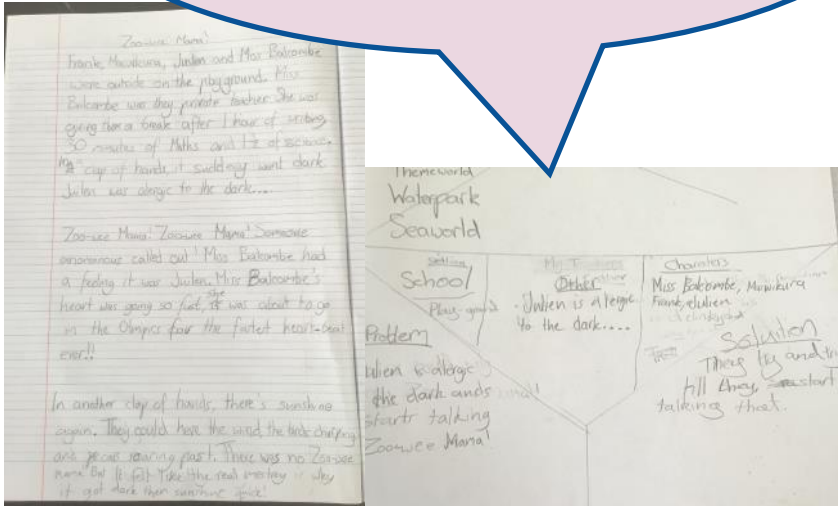 Zoo-wee Mama!
Frank, Muwikura, Julien and Miss Balcombe
were outside on the playground. Miss
Balcombe was they private teacher. She was
giving them a break after 1 hour of writing,
30 minutes of Maths and 1½ of science.
In a cup of hands, it suddenly went dark
Julien was alergic to the dark....
Zoo-wee Mama! Zoo-wee Mama! Someone
anonamous called out! Miss Balcombe had
a feeling it was Julien. Miss Balcombe's
heart was going so fast, she was about to go
in the Olimpics four the fastest heart-beat
ever!!
In another clap of hands, there's sunshine
again. They could hear the wind, the birds chirping
and roaring past. There was no Zoo-wee
mama. But it felt like the real mestrey is why
it got dark then sunshine quick!
Themeworld
Waterpark
Seaworld
Setting
School
Playground
Other
- Julien is alergic
to the dark....
Charaters
Miss Balcombe, Muwikura
Frank, Julien
Problem
ulien is alergic
the dark and
starts talking
Zoo-wee Mama!
Soluiten
They try and
till they start
talking that.